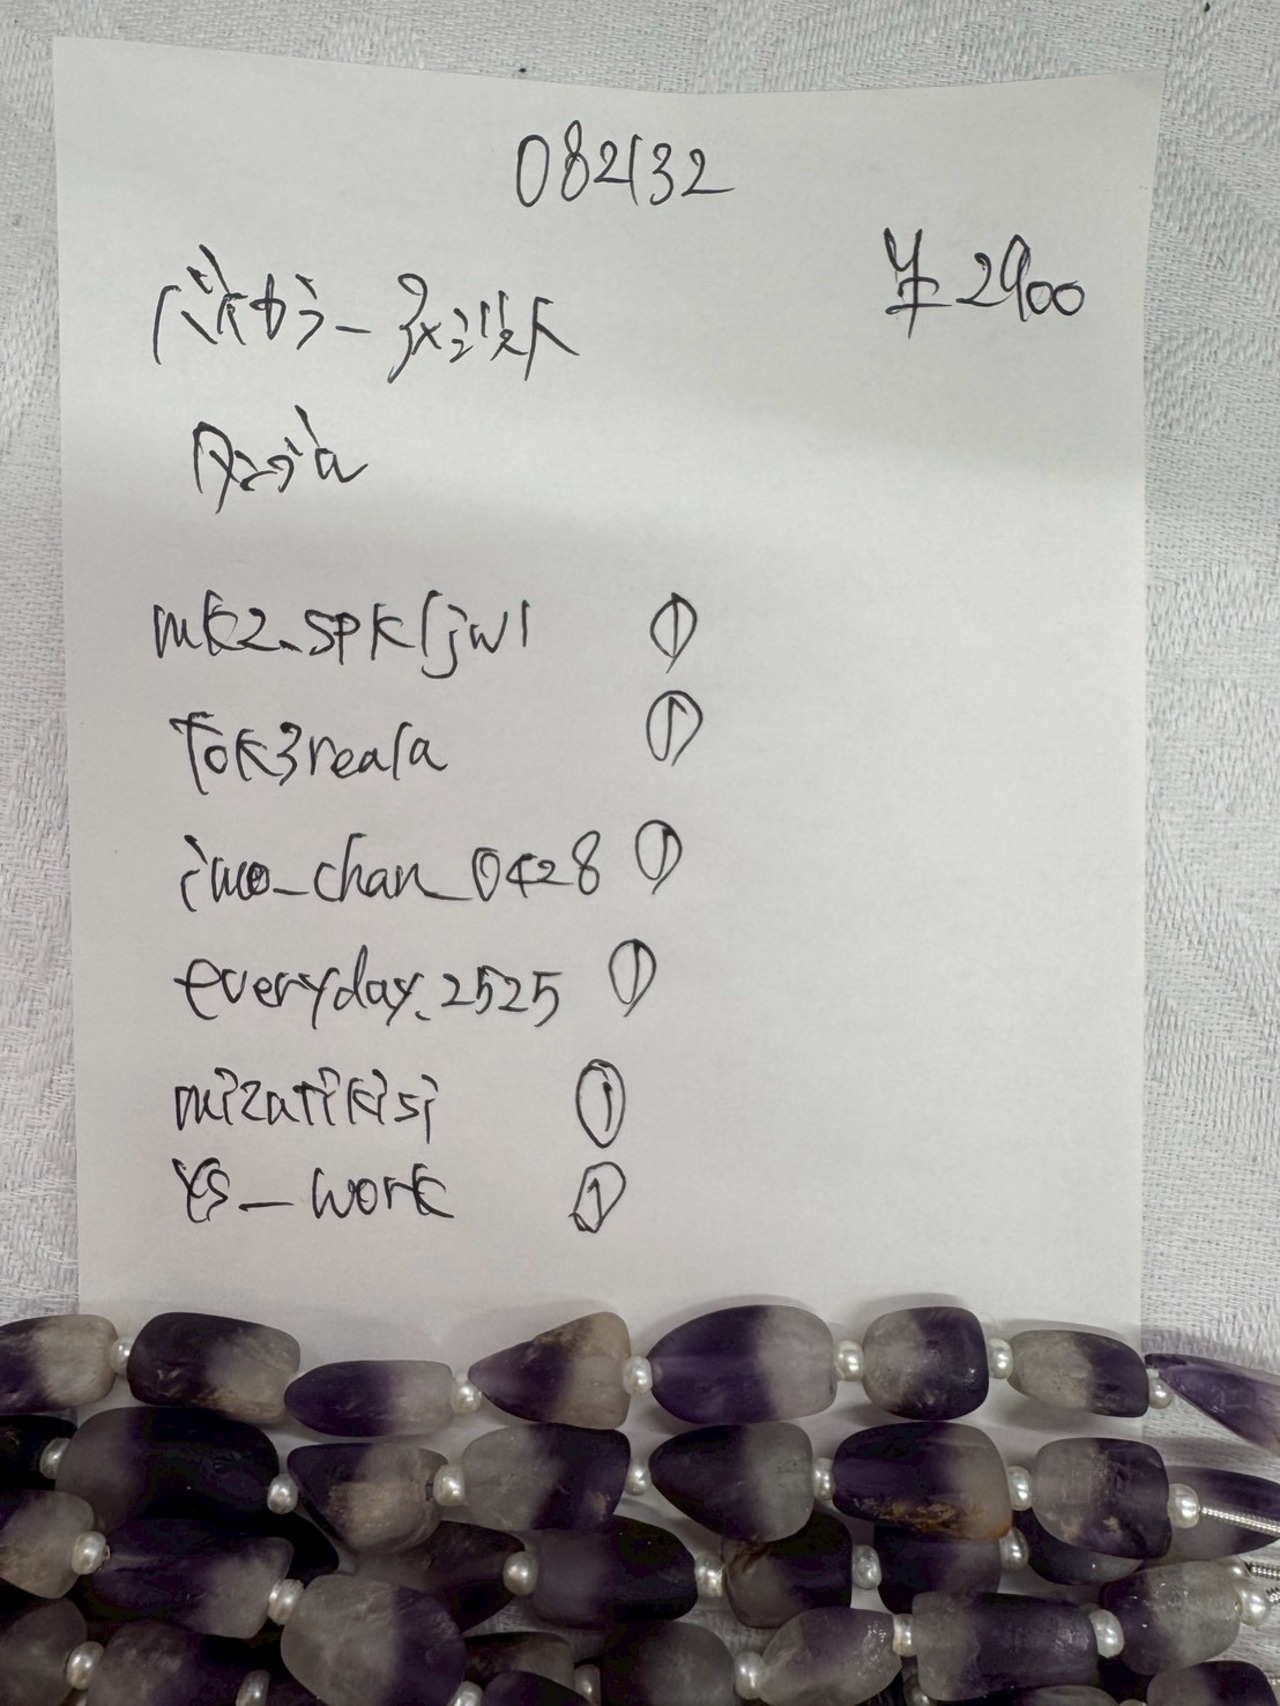 082132
¥2900
バイカラーアメジスト
タンブル
mk2_spkljwl ①
Tok3reala ①
iwo_chan_0428 ①
everyday.2525 ①
mizatikisi ①
YS_work ①